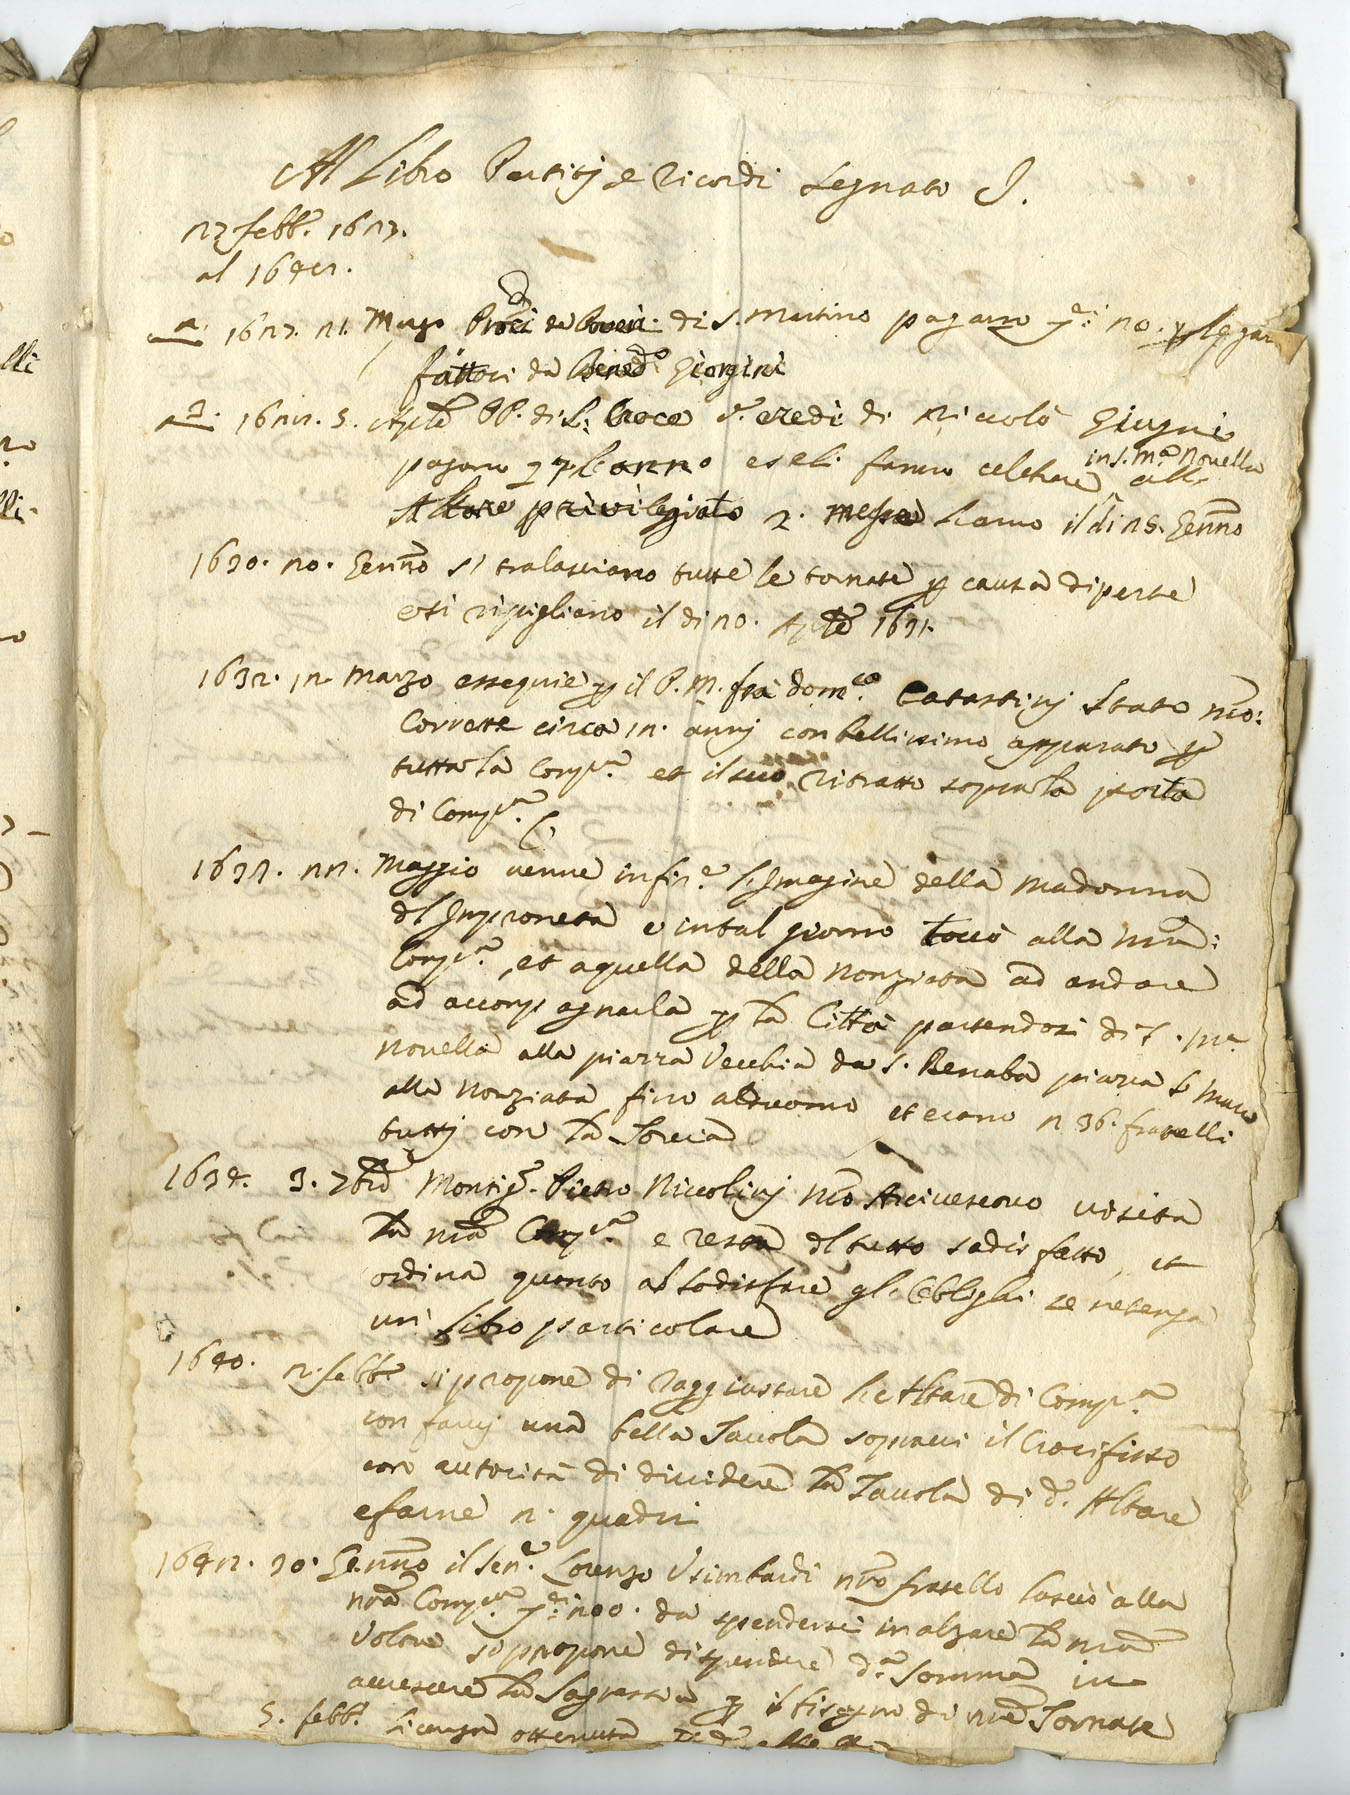 Al Libro Partiti e Ricordi segnato I.
27 febb. 1623.
al 1642.
1627. 21. Marzo di S. Martino pagano 20. p legati
fattoci da Bened.o Giorgini
S. PP. di S. Croce eredi di Niccolò Giugni
pagano anno e seli fanno celebrare all
in S. M.a Novella
Altare privilegiato 2. messe l'anno il di 25. Genn.o
1630. 20. Genn.o si tralasciano tutte le tornate p causa di peste
e si ripigliano il di 20. Ap.le 1631.
1632. 12 Marzo essequie p il P. M. frà Dom.co Catastini stato nro:
Corrett.e circa 12. anni con bellissimo apparato p
tutta la Comp.a et il suo Ritratto sopra la porta
di Comp.a
1633. 22. Maggio venne in fir.e l'Imagine della Madonna
dl Impruneta e in tal giorno toccò alla nra:
Comp.a, et a quella della Nonziata ad andare
ad accompagnarla p la Città partendosi di S. M.a
Novella alla piazza Vecchia da S. Benaba piazza S Marco
alla Nonziata fino al duomo et erano n 36. fratelli
tutti con la Torcia
1634. 3. 7bre Monsig.r Pietro Niccolini nro Arcivescovo visita
la nra Comp.a e resta dl tutto sadisfatto, et
ordina quanto al sodisfare gl'Obblighi se ne tenga
un libro particolare
1640. 2. febb.o si propone di raggiustare l'Altare di Comp.a
con farvj una bella Tavola sopravi il Crocifisso
con autorità di dividere la Tavola di d.o Altare
e farne 2. quadri
1642. 30. Genn.o il Sen.re Lorenzo Usimbardi nro fratello lasciò alla
nra Comp.a 200. da spendersi in alzare la nra
Volta si propone di spendere d.a Somma in
accrescere la Sagrestia p il bisogno di nre Tornate
5. febb.o licenza ottenuta